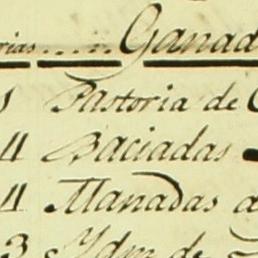 rias...... Ganad
1 Pastoria de C
4 Baciadas
4 Manadas a
3 Ydm de